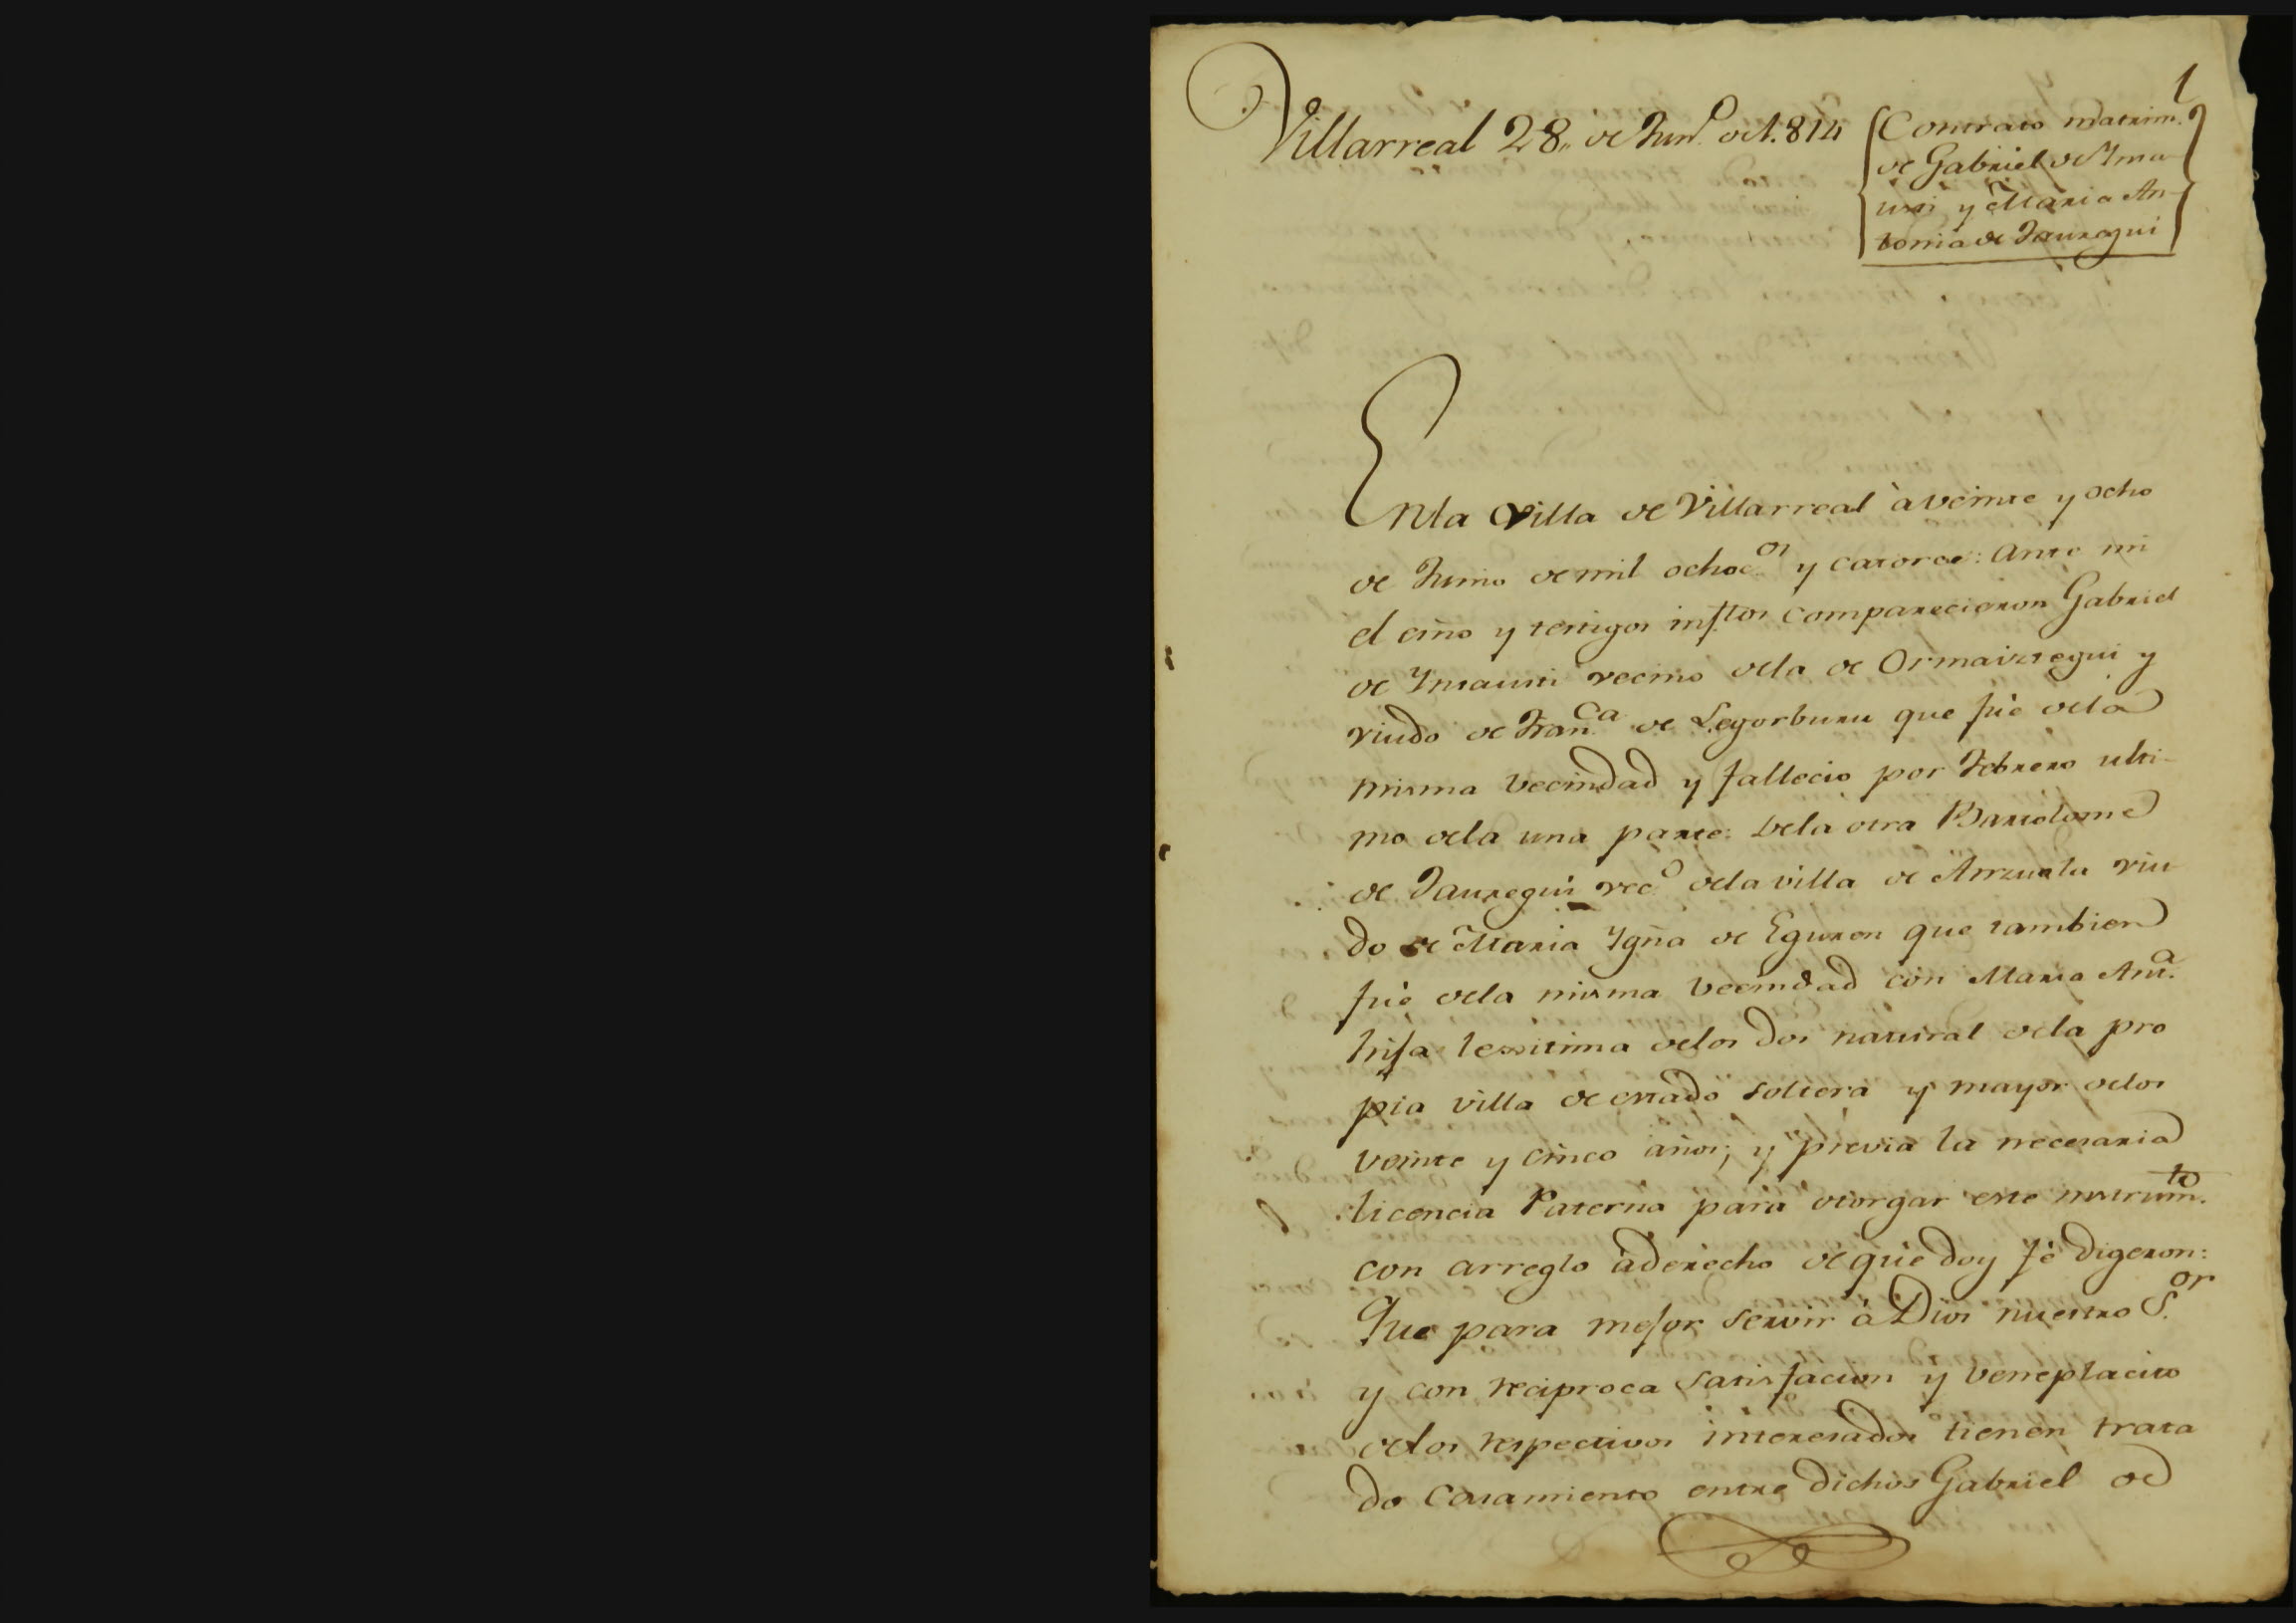 1
Villarreal 28,, de Jun.º de 1.814
Contrato matrim.º
de Gabriel de Ynza-
usti y Maria An-
tonia de Jauregui
Enla Villa de Villarreal à veinte y ocho
de Junio de mil ochoc.os y catorce: Ante mi
el esño y testigos infttos comparecieron Gabriel
de Ynsausti vecino dela de Ormaiztegui y
viudo de Fran.ca de Legorburu que fùe dela
misma vecindad y fallecio por Febrero ulti-
mo dela una parte: Dela otra Bartolome
de Jauregui vec.º dela villa de Anzuola viu-
do de Maria Ygña de Eguren que tambien
fùe dela misma vecindad con Maria Ant.a
hija lexitima delos dos natural dela pro
pia villa de estado soltera y mayor delos
veinte y cinco años; y previa la necesaria
licencia Paterna para otorgar este instrum.to
con arreglo àderecho de que doy fè digeron:
Que para mejor servir à Dios nuestro S.or
y con reciproca satisfacion y veneplacito
delos respectivos interesados tienen trata
do Casamiento entre dichos Gabriel de